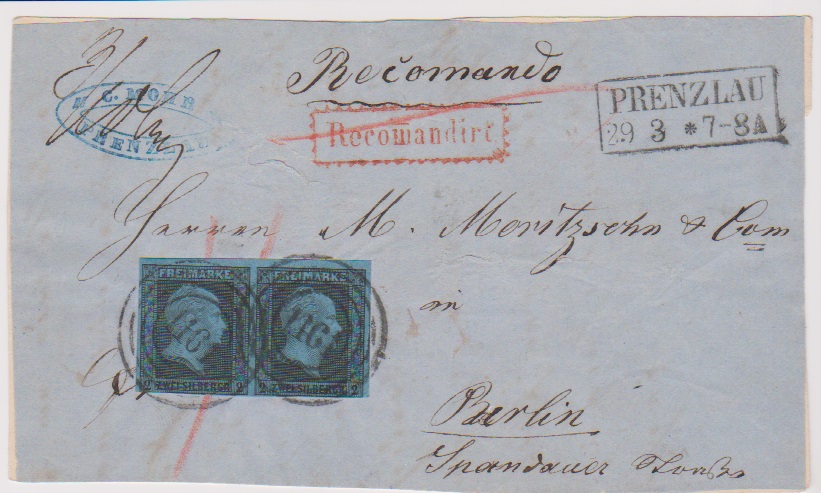 Recomando
C. MOHR
PRENZLAU
Recomandirt
PRENZLAU
29 3 *7-8A
Herren M. Moritzsohn & Com
in
FREIMARKE FREIMARKE
2 ZWEI SILBERGR 2 2 ZWEI SILBERGR 2
Berlin
Spandauer Straße